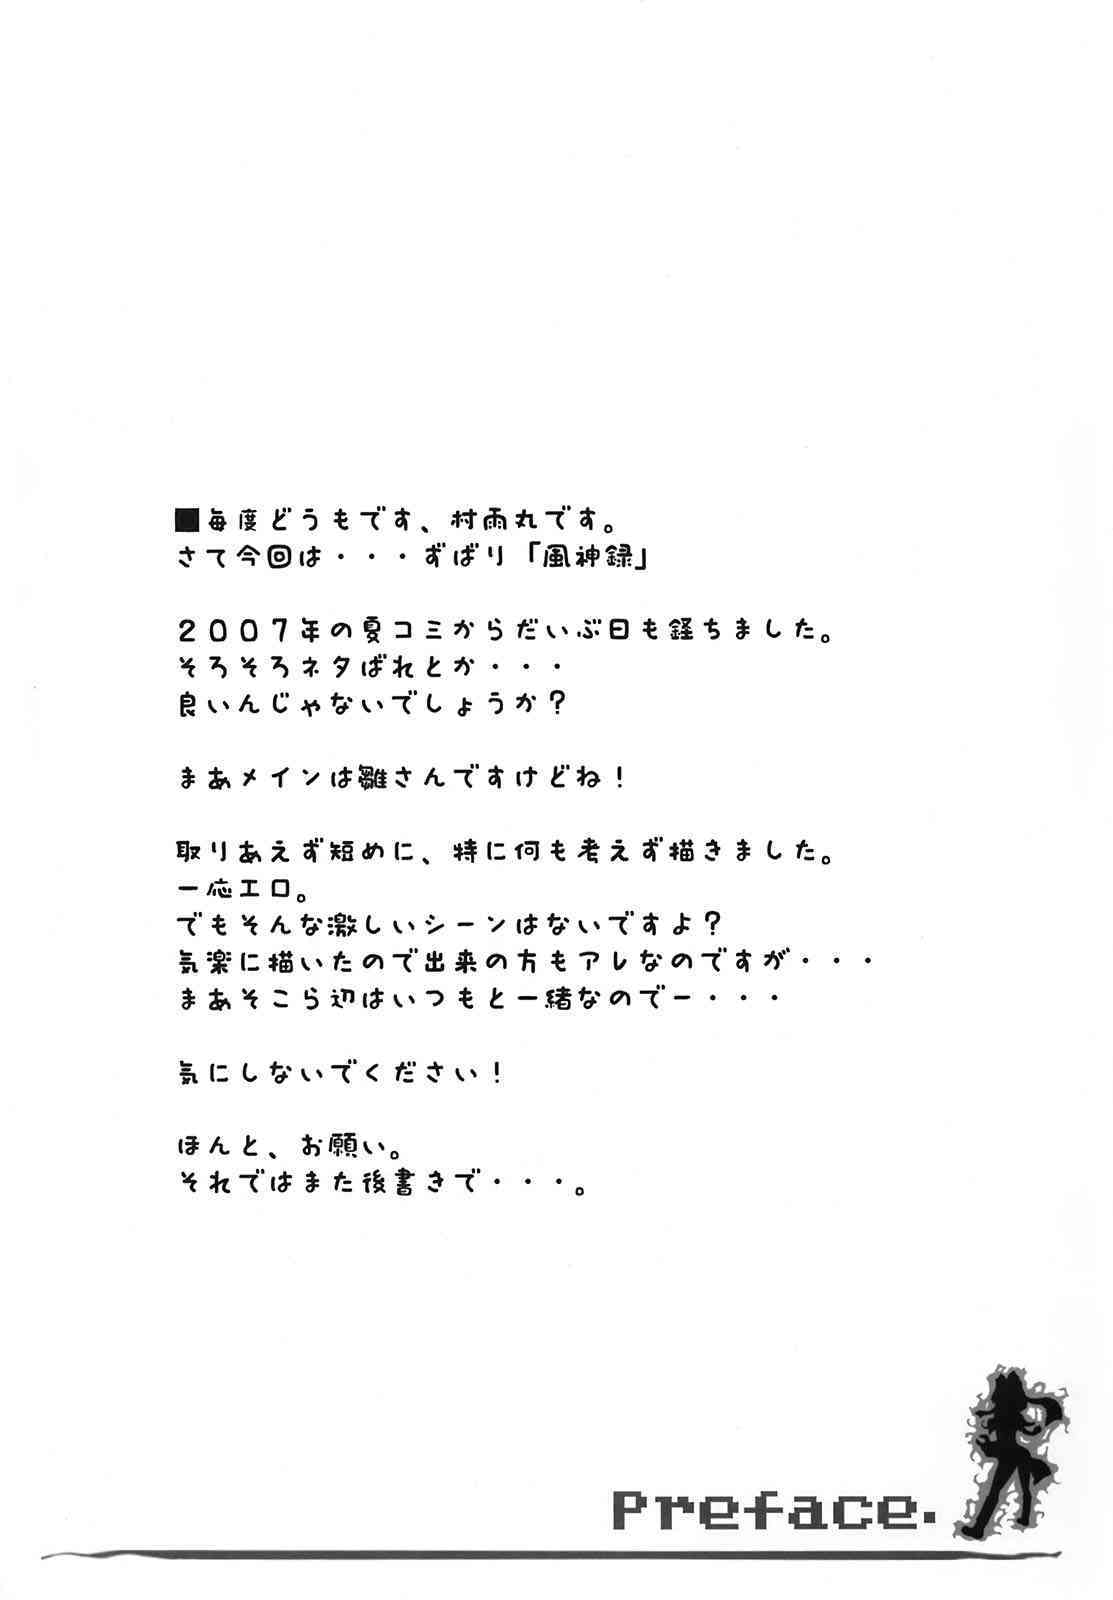 ■毎度どうもです、村雨丸です。
さて今回は・・・ずばり「風神録」
２００７年の夏コミからだいぶ日も経ちました。
そろそろネタばれとか・・・
良いんじゃないでしょうか？
まあメインは雛さんですけどね！
取りあえず短めに、特に何も考えず描きました。
一応エロ。
でもそんな激しいシーンはないですよ？
気楽に描いたので出来の方もアレなのですが・・・
まあそこら辺はいつもと一緒なのでー・・・
気にしないでください！
ほんと、お願い。
それではまた後書きで・・・。
Preface.